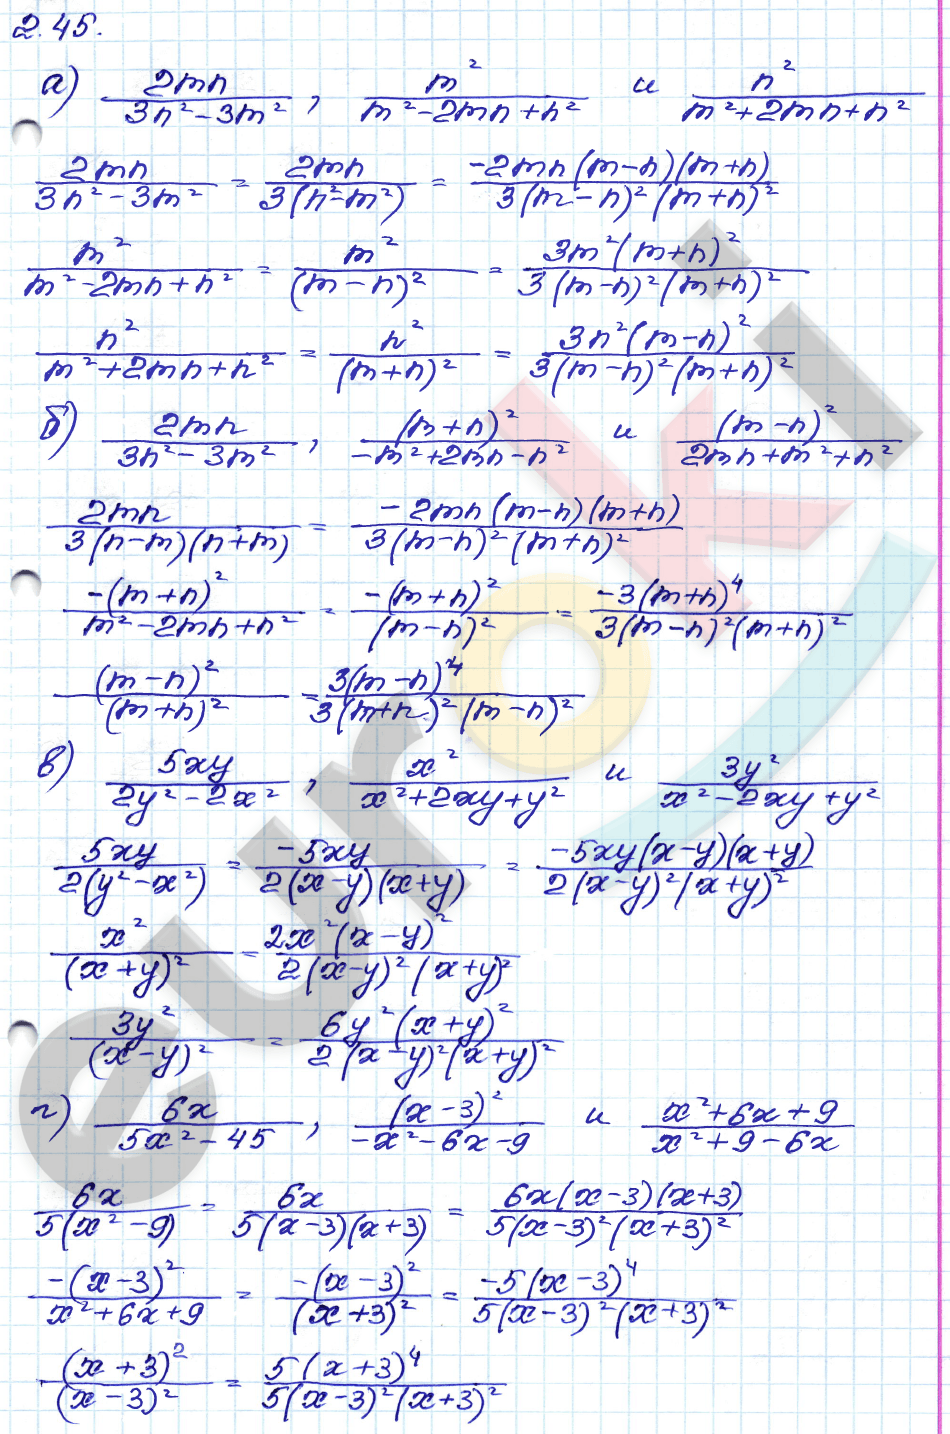 2.45.
а) 2mn/(3n²-3m²), m²/(m²-2mn+n²) и n²/(m²+2mn+n²)
2mn/(3n²-3m²) = 2mn/(3(n²-m²)) = -2mn(m-n)(m+n)/(3(m-n)²(m+n)²)
m²/(m²-2mn+n²) = m²/(m-n)² = 3m²(m+n)²/(3(m-n)²(m+n)²)
n²/(m²+2mn+n²) = n²/(m+n)² = 3n²(m-n)²/(3(m-n)²(m+n)²)
б) 2mn/(3n²-3m²), (m+n)²/(-m²+2mn-n²) и (m-n)²/(2mn+m²+n²)
2mn/(3(n-m)(n+m)) = -2mn(m-n)(m+n)/(3(m-n)²(m+n)²)
-(m+n)²/(m²-2mn+n²) = -(m+n)²/(m-n)² = -3(m+n)⁴/(3(m-n)²(m+n)²)
(m-n)²/(m+n)² = 3(m-n)⁴/(3(m+n)²(m-n)²)
в) 5xy/(2y²-2x²), x²/(x²+2xy+y²) и 3y²/(x²-2xy+y²)
5xy/(2(y²-x²)) = -5xy/(2(x-y)(x+y)) = -5xy(x-y)(x+y)/(2(x-y)²(x+y)²)
x²/(x+y)² = 2x²(x-y)²/(2(x-y)²(x+y)²)
3y²/(x-y)² = 6y²(x+y)²/(2(x-y)²(x+y)²)
г) 6x/(5x²-45), (x-3)²/(-x²-6x-9) и (x²+6x+9)/(x²+9-6x)
6x/(5(x²-9)) = 6x/(5(x-3)(x+3)) = 6x(x-3)(x+3)/(5(x-3)²(x+3)²)
-(x-3)²/(x²+6x+9) = -(x-3)²/(x+3)² = -5(x-3)⁴/(5(x-3)²(x+3)²)
(x+3)²/(x-3)² = 5(x+3)⁴/(5(x-3)²(x+3)²)
euroki